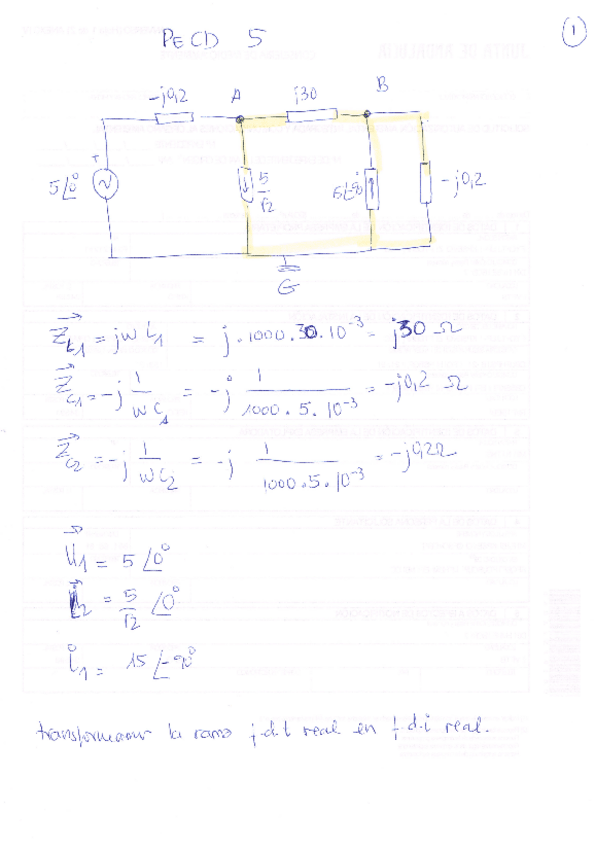 PECD 5
1
-j0,2 A j30 B
+
5∠0° 5/√2 15∠-90° -j0,2
G
Z⃗L1 = jw L1 = j·1000·30·10⁻³ = j30 Ω
Z⃗C1 = -j 1/WC1 = -j 1/1000·5·10⁻³ = -j0,2 Ω
Z⃗C2 = -j 1/WC2 = -j 1/1000·5·10⁻³ = -j0,2Ω
U⃗1 = 5∠0°
= 5/√2 ∠0°
i1 = 15∠-90°
transformamos la rama f.d.t real en f.d.i real.